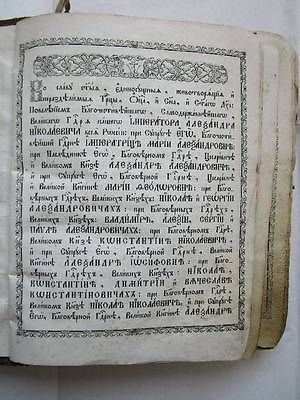 Во славу ст҃ыѧ, є҆диносꙋщныѧ, животворѧщїѧ и҆
нераздѣлимыѧ Трⷪ҇цы, Ѻ҆ц҃а̀, и҆ Сн҃а, и҆ Ст҃а́гѡ Дх҃а:
Повелѣнїемъ Бл҃гочестивѣйшагѡ, Самодержавнѣйшагѡ
Великагѡ Гдⷭ҇рѧ нашегѡ ІМПЕРАТОРА АЛЕѮАНДРА
НІКОЛАЕВИЧА всеѧ Рѡссїи: при Сꙋпрꙋгѣ ЕГѠ, Бл҃гочести-
вѣйшей Гдⷭ҇рынѣ ІМПЕРАТРИЦѢ МАРІИ АЛЕѮАНДРОВНѢ:
при Наслѣдникѣ ЕГѠ, Бл҃говѣрномъ Гдⷭ҇рѣ, Цесаревичѣ
и҆ Великомъ Кнѧзѣ АЛЕѮАНДРѢ АЛЕѮАНДРОВИЧѢ,
и҆ Сꙋпрꙋгѣ ЕГѠ, Бл҃говѣрной Гдⷭ҇рынѣ, Цесаревнѣ
и҆ Великой Кнѧгинѣ МАРІИ ѲЕОДѠРОВНѢ: при Бл҃го-
вѣрныхъ Гдⷭ҇рехъ, Великихъ Кнѧзехъ НІКОЛАѢ и҆ ГЕѠРГІИ
АЛЕѮАНДРОВИЧАХЪ: при Бл҃говѣрныхъ Гдⷭ҇рехъ,
Великихъ Кнѧзехъ: ВЛАДИМІРѢ, АЛЕѮІИ, СЕРГІИ и҆
ПАѴЛѢ АЛЕѮАНДРОВИЧАХЪ: при Бл҃говѣрномъ Гдⷭ҇рѣ,
Великомъ Кнѧзѣ КѠНСТАНТІНѢ НІКОЛАЕВИЧѢ,
и҆ при Сꙋпрꙋгѣ ЕГѠ, Бл҃говѣрной Гдⷭ҇рынѣ, Великой
Кнѧгинѣ АЛЕѮАНДРѢ ІѠСИФОВНѢ: при Бл҃го-
вѣрныхъ Гдⷭ҇рехъ, Великихъ Кнѧзехъ: НІКОЛАѢ,
КѠНСТАНТІНѢ, ДИМИТРІИ и҆ ВѦЧЕСЛАВѢ
КѠНСТАНТІНОВИЧАХЪ: при Бл҃говѣрномъ Гдⷭ҇рѣ,
Великомъ Кнѧзѣ НІКОЛАѢ НІКОЛАЕВИЧѢ, и҆ при Сꙋпрꙋгѣ
ЕГѠ, Бл҃говѣрной Гдⷭ҇рынѣ, Великой Кнѧгинѣ АЛЕѮАНДРѢ